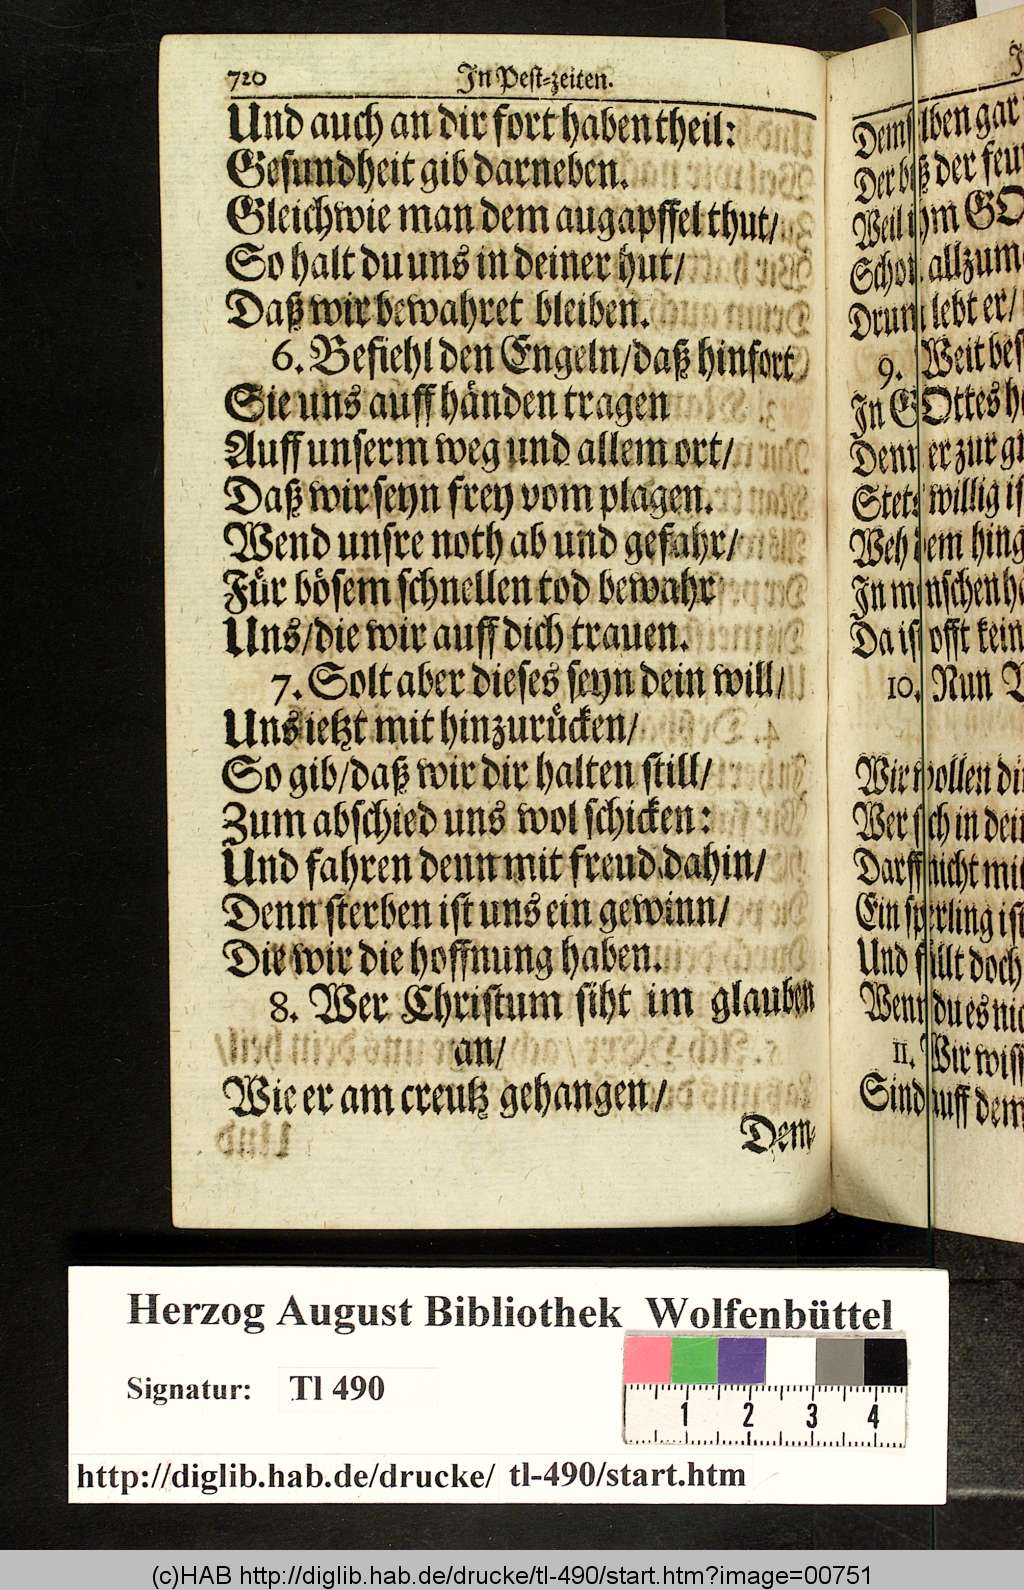 720 In Pest-zeiten.
Und auch an dir fort haben theil:
Gesundheit gib darneben.
Gleichwie man dem augapffel thut/
So halt du uns in deiner hut/
Daß wir bewahret bleiben.
6. Befiehl den Engeln/daß hinfort
Sie uns auff händen tragen
Auff unserm weg und allem ort/
Daß wir seyn frey vom plagen.
Wend unsre noth ab und gefahr/
Für bösem schnellen tod bewahr
Uns/die wir auff dich trauen.
7. Solt aber dieses seyn dein will/
Uns ietzt mit hinzurücken/
So gib/daß wir dir halten still/
Zum abschied uns wol schicken:
Und fahren denn mit freud dahin/
Denn sterben ist uns ein gewinn/
Die wir die hoffnung haben.
8. Wer Christum siht im glauben
an/
Wie er am creutz gehangen/
Dem-
lben gar
der feu
allzum
lebt er/
9. Weit bes
In GOttes h
Denn er zur g
Stets willig is
Weh dem hing
In menschen h
Da ist offt kein
10. Nun
Wir wollen di
Wer sich in dei
Darff nicht mit
Ein sperling ist
Und fällt doch
Wenn du es nic
11. Wir wiss
Sind auff dem
Herzog August Bibliothek Wolfenbüttel
Signatur: Tl 490
1 2 3 4
http://diglib.hab.de/drucke/ tl-490/start.htm
(c)HAB http://diglib.hab.de/drucke/tl-490/start.htm?image=00751